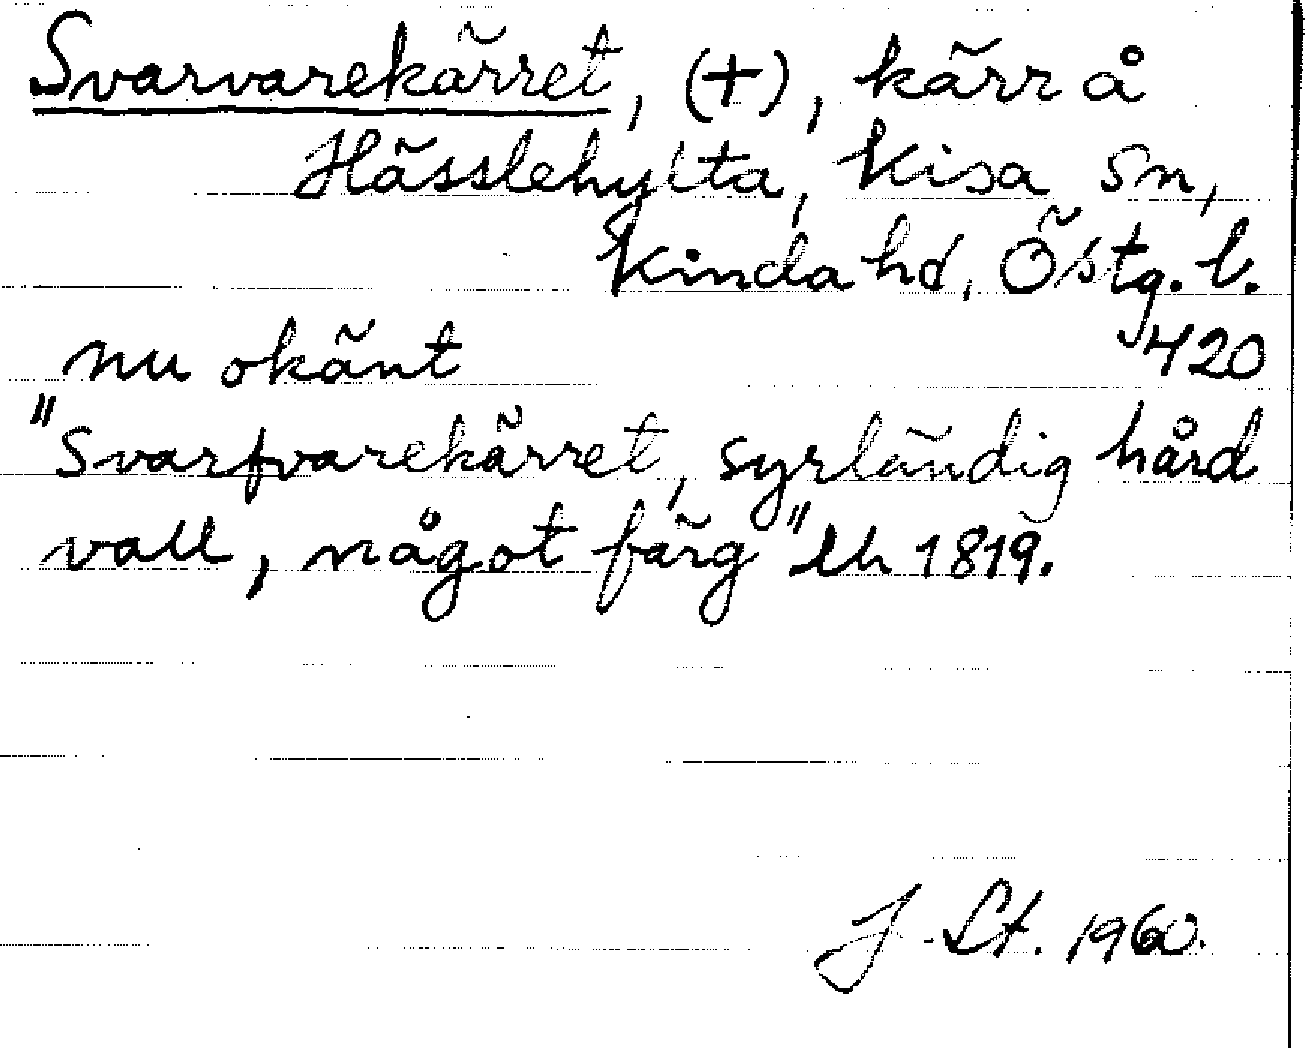 Svarvarekärret, (+), kärr å
Hässlehylta, Kisa sn,
Kinda hd, Östg. l.
nu okänt 420
"Svarfvarekärret, syrländig hård
vall, något färg" Lh 1819.
J. Lt. 1960.